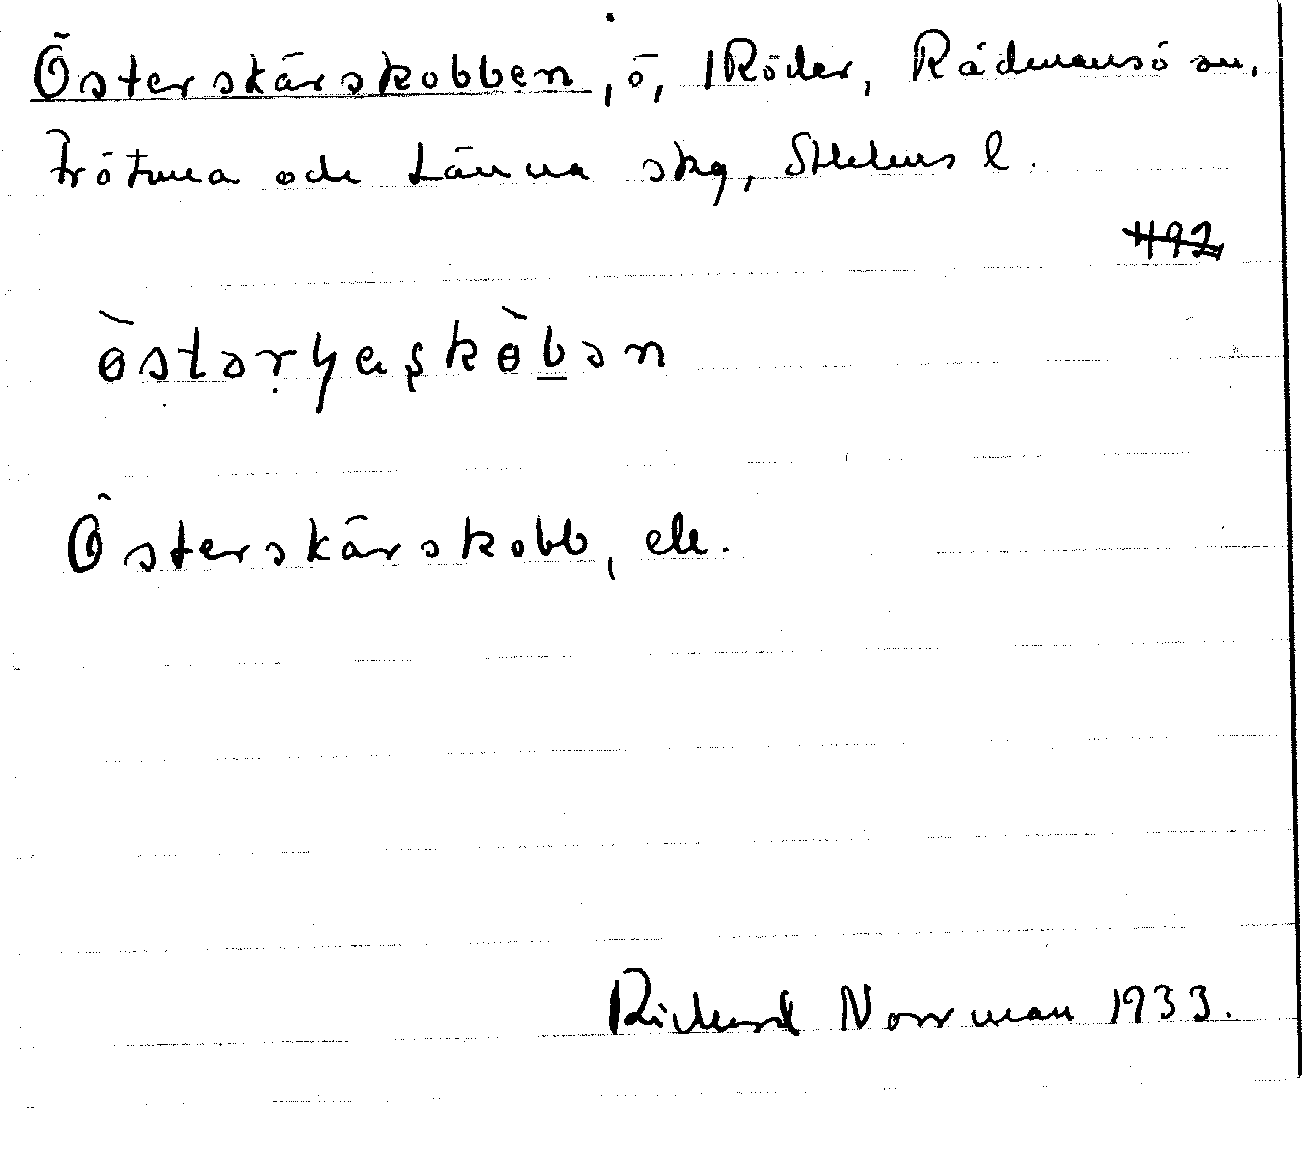 Österskärskobben, ö, Röder, Rådmansö sn,
Frötuna och Länna skg, Sthlms l.
492
Österskärskobb, ele.
Rickard Norrman 1933.